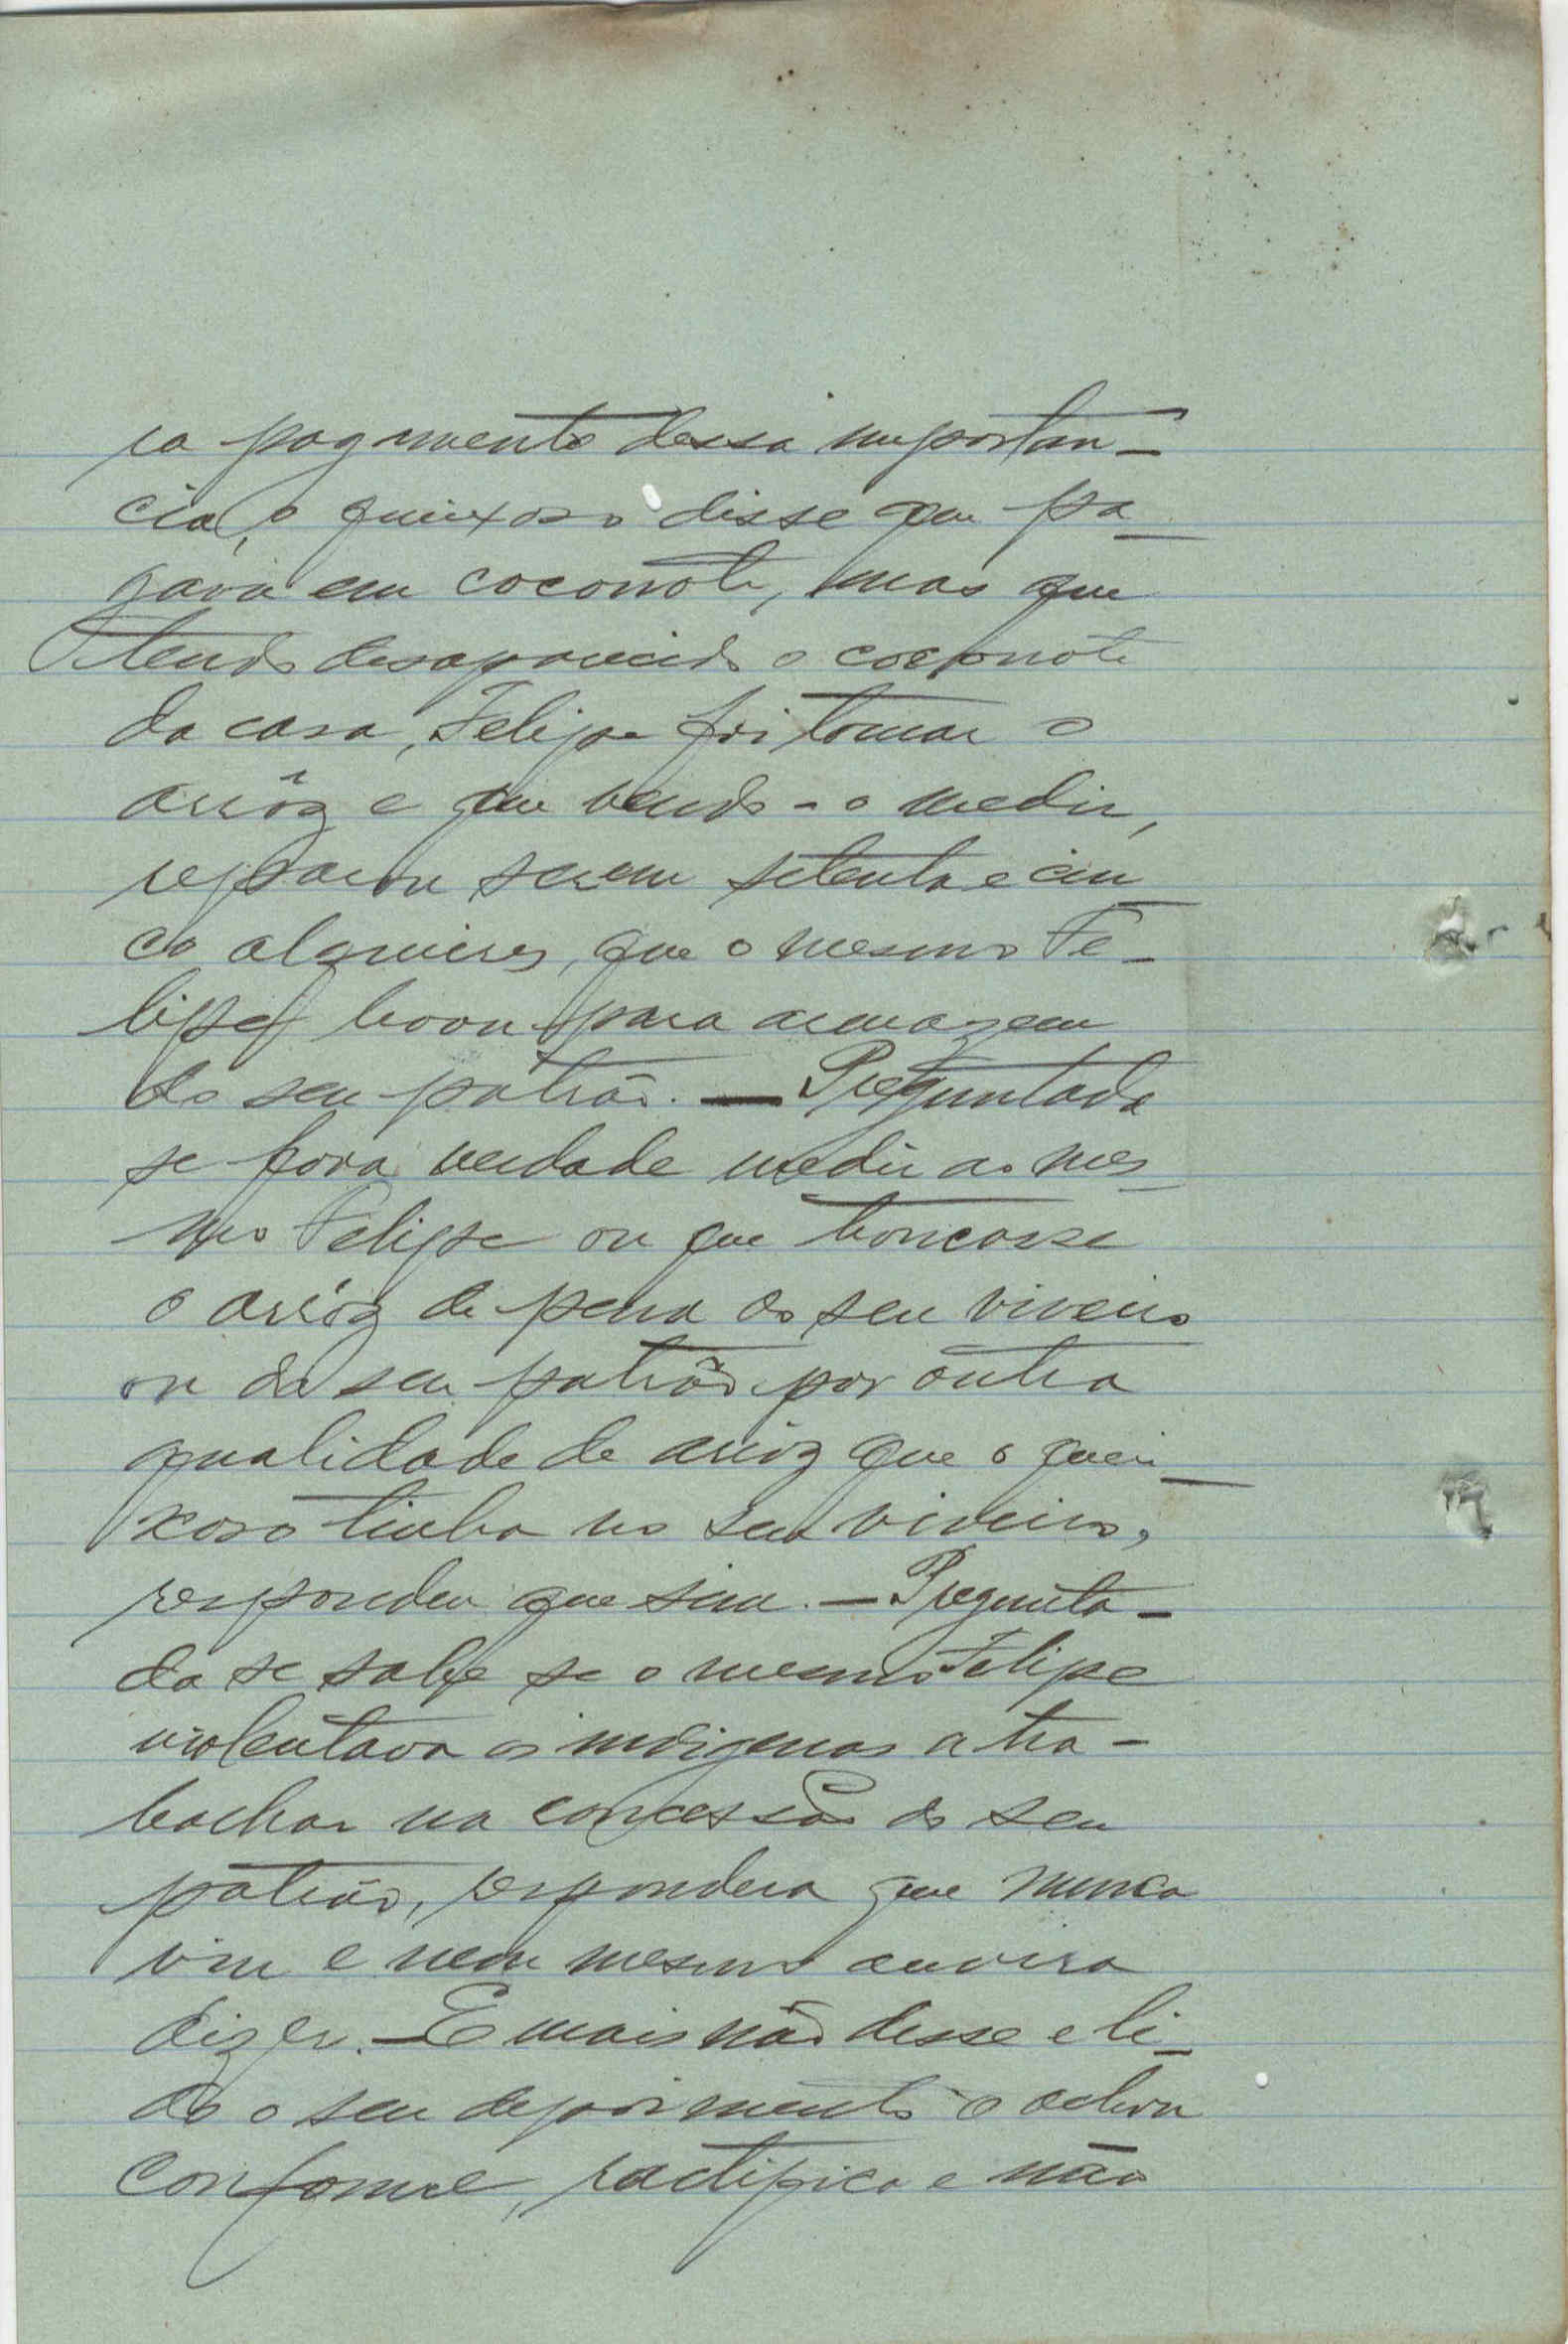 ra pagamento dessa importan-
cia, o queixoso disse que pa-
gava em coconote, mas que
tendo desaparecido o coconote
da casa, Felipe foi tomar o
arrôz e que vendo-o medir,
reparou serem setenta e cin
co alqueires, que o mesmo Fe-
lipe levou para armazem
do seu patrão. — Preguntada
se fora verdade pedir ao mes
mo Felipe ou que trocasse
o arrôz de pena do seu viveiro
ou do seu patrão por outra
qualidade de arrôz que o quei-
xoso tinha no seu viveiro,
respondeu que sim. — Pregunta-
da se sabe se o mesmo Felipe
violentava os indigenas a tra-
balhar na concessão do seu
patrão, respondera que nunca
viu e nem mesmo ouvira
dizer. — E mais não disse e li-
do o seu depoimento o achou
conforme, ractifica e não